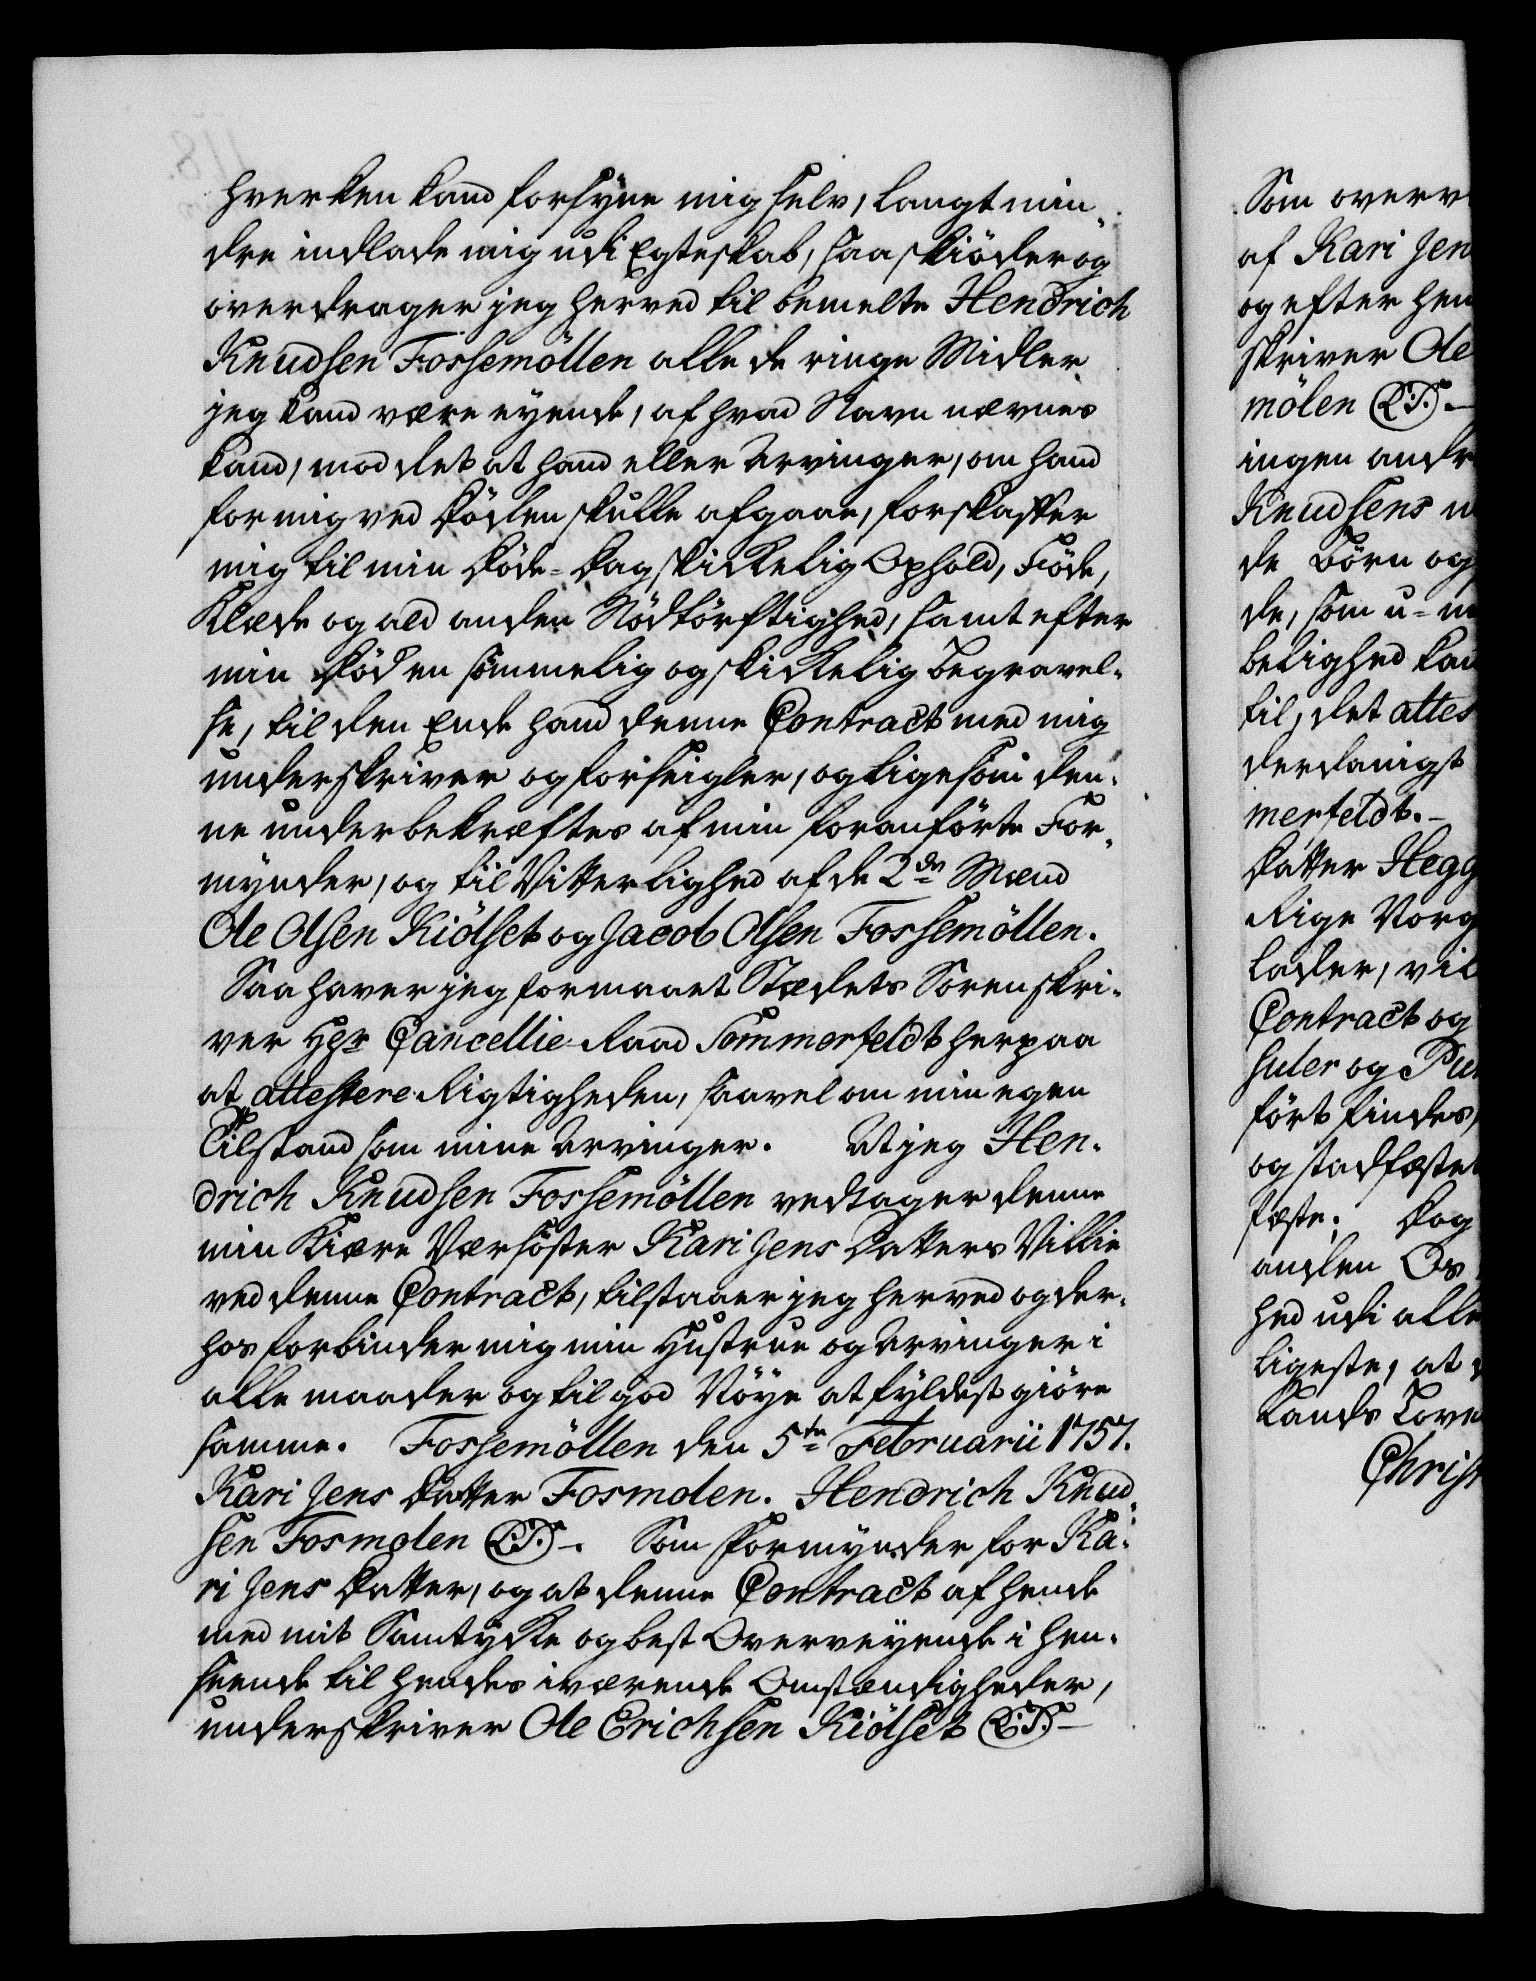 hverken kand forsyne mig selv, langt min-
dre indlade mig udi Egteskab, saa skiöder og
overdrager jeg herved til bemelte Hendrich
Knudsen Fossemöllen alle de ringe Midler
jeg kand være eyende, af hvad Navn nævnes
kand, mod det at hand eller Arvinger, om hand
for mig ved Döden skulle afgaae, forskaffer
mig til min Döde-Dag skikkelig Ophold, Föde,
Klæde og ald anden Nödtörftighed, samt efter
min Död en sömmelig og skikkelig Begravel-
se, til den Ende hand denne Contract med mig
underskriver og forseigler, og ligesom den-
ne underbekræftes af min foranförte For-
mynder, og til Vitterlighed af de 2de Mænd
Ole Olsen Kiölset og Jacob Olsen Fossemöllen.
Saa haver jeg formaaet Stædets Sorenskri-
ver Hgr Cancellie-Raad Sommerfeldt herpaa
at attestere Rigtigheden, saavel om min egen
Tilstand som mine Arvinger. At jeg Hen-
drich Knudsen Fossemöllen vedtager denne
min Kiære Værsöster Kari Jens Datters Villie
ved denne Contract, tilstaaer jeg herved og der-
hos forbinder mig min Hustrue og Arvinger i
alle maader og til god Nöye at fyldest giöre
samme. Fossemöllen den 5te Februarii 1757.
Kari Jens Datter Fosmolen. Hendrich Knud-
sen Fosmolen (L.S.) -. Som Formynder for Ka-
ri Jens Datter, og at denne Contract af hende
med mit Samtykke og best Overveyende i Hen-
seende til hendes iværende Omstændigheder,
underskriver Ole Erichsen Kiölset (L.S.) -
Som overv
af Kari Jen
og efter hen
skriver Ole
mölen (L.S.) -
ingen andr
Knudsens
de Börn og
de, som u-
belighed kan
til, det attes
derdanigst
merfeldt. -
Datter Hegg
Rige Norg
lader, vil
Contract og
suler og Pun
fört findes,
og stadfæste
fæste. Dog
anden Os
hed udi alle
ligeste, at
Lands Love
Christ